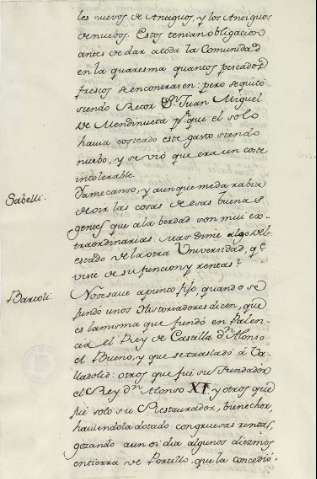 les nuevos de Antiguos, y los Antiguos
de nuebos. Estos tenian obligacion
antes de dar a toda la Comunidad
en la quaresma quantos pescados
frescos se encontrasen: pero se quitó
siendo Rector Dn. Juan Miguel
de Mendinueta pr. que el solo
havia costeado este gasto siendo
nuebo, y se vió que era un coste
intolerable.
Sabelli. Ya me canso, y aunque me da rabia
de oir las cosas de esas buenas
gentes que a la berdad son mui ex-
traordinarias. Mas dime algo del
estado de la otra Universidad, qe.
vive de su pension y rentas?
Bartoli. No se save a punto fijo quando se
fundó unos Historiadores dicen, que
es la misma que fundó en Palen-
cia el Rey de Castilla dn. Alonso
el Bueno, y que se trasladó a Va-
lladolid: otros que fué su Fundador
el Rey dn. Alonso XI y otros que
fué solo su Restaurador, bienechor,
haviendola dotado con gruesas rentas,
gozando aun oi dia algunos diezmos
en tierra de Portillo que la concedió